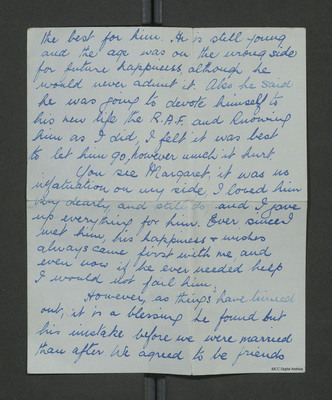 the best for him. He is still young
and the age was on the wrong side
for future happiness, although he
would never admit it. Also he said
he was going to devote himself to
his new life the R.A.F. and knowing
him as I did, I felt it was best
to let him go, however much it hurt.
You see Margaret, it was no
infatuation on my side, I loved him
very dearly, and still do and I gave
up everything for him. Ever since I
met him, his happiness & wishes
always came first with me and
even now if he ever needed help
I would not fail him.
However, as things have turned
out, it is a blessing he found out
his mistake before we were married
than after. We agreed to be friends